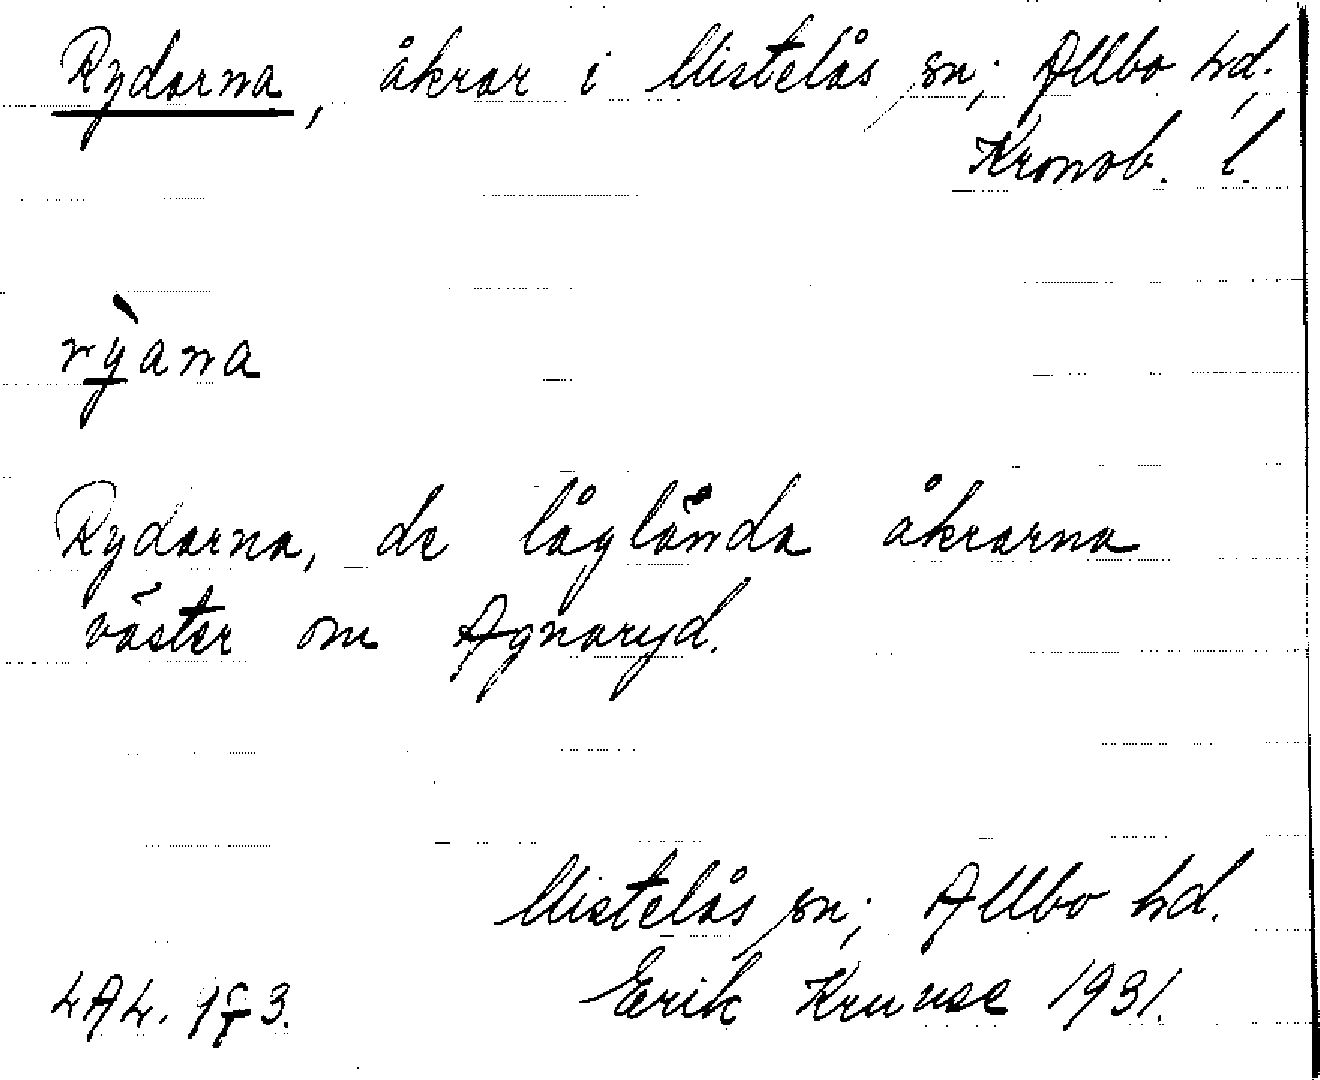 Rydarna, åkrar i Mistelås sn; Allbo hd.
Kronob. l.
rỳana
Rydarna, de låglända åkrarna
väster om Agnaryd.
Mistelås sn; Allbo hd.
Erik Kruuse 1931.